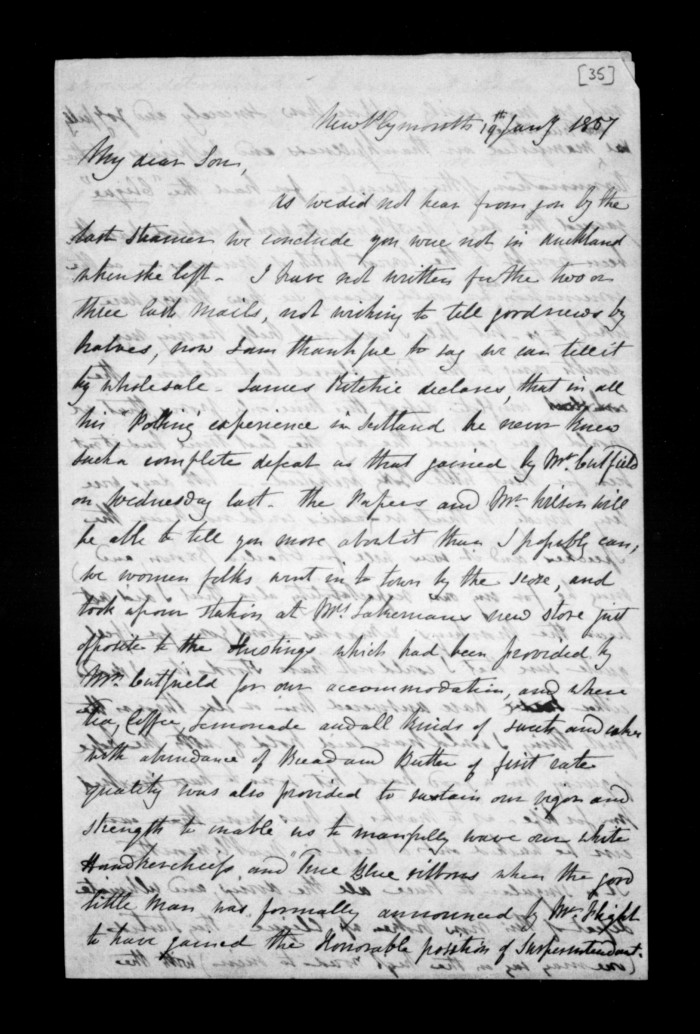 [35]
New Plymouth 19th Jany 1857
My dear Son,
As we did not hear from you by the
last Steamer we conclude you were not in Auckland
when she left - I have not written for the two or
three last Mails, not wishing to tell good news by
halves, now I am thankful to say we can tell it
by wholesale - James Ritchie declares, that in all
his Polling experience in Scotland he never knew
such a complete defeat as that gained by Mr. Cutfield
on Wednesday last - the Papers and Mr. Wilson will
be able to tell you more about it than I possibly can,
we women folks went in to town by the score, and
took up our station at Mrs. Lakemans new store just
opposite to the Hustings which had been provided by
Mrs. Cutfield for our accommodation, and where
Tea, Coffee, Lemonade and all kinds of sweets and cakes
with abundance of Bread and Butter of first rate
quality was also provided to sustain our vigor and
strength to enable us to manfully wave our white
Handkercheefs and True Blue ribbons when the good
little Man was formally announced by Mr. Flight
to have gained the Honorable position of Superintendent.